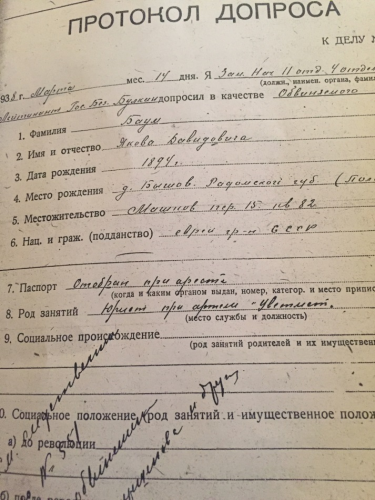 ПРОТОКОЛ ДОПРОСА
К ДЕЛУ №
1938 г. Марта мес. 14 дня. Я Зам. Нач 11 отд. 4 отдела
(должн., наимен. органа, фамил
Лейтенант Гос. Без. Булкин допросил в качестве Обвиняемого
1. Фамилия Баум
2. Имя и отчество Якова Давидовича
3. Дата рождения 1894 г.
4. Место рождения д. Бышов. Радомской губ (Пол
5. Местожительство пер. 15 кв 82
6. Нац. и граж. (подданство) еврей гр-н СССР
7. Паспорт Отобран при аресте
(когда и каким органом выдан, номер, категор. и место приписк
8. Род занятий Юрист при артели "Цветмет"
(место службы и должность)
9. Социальное происхождение
(род занятий родителей и их имуществен
0. Социальное положение (род занятий и имущественное полож
а) до революции
б)